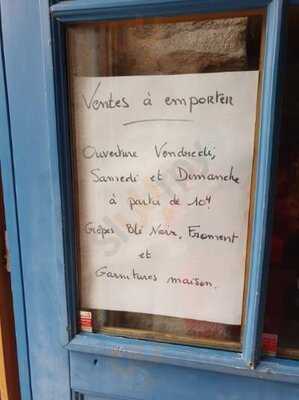 Ventes à emporter
Ouverture Vendredi,
Samedi et Dimanche
à partir de 10H
Crêpes Blé Noir, Froment
et
Garnitures maison.